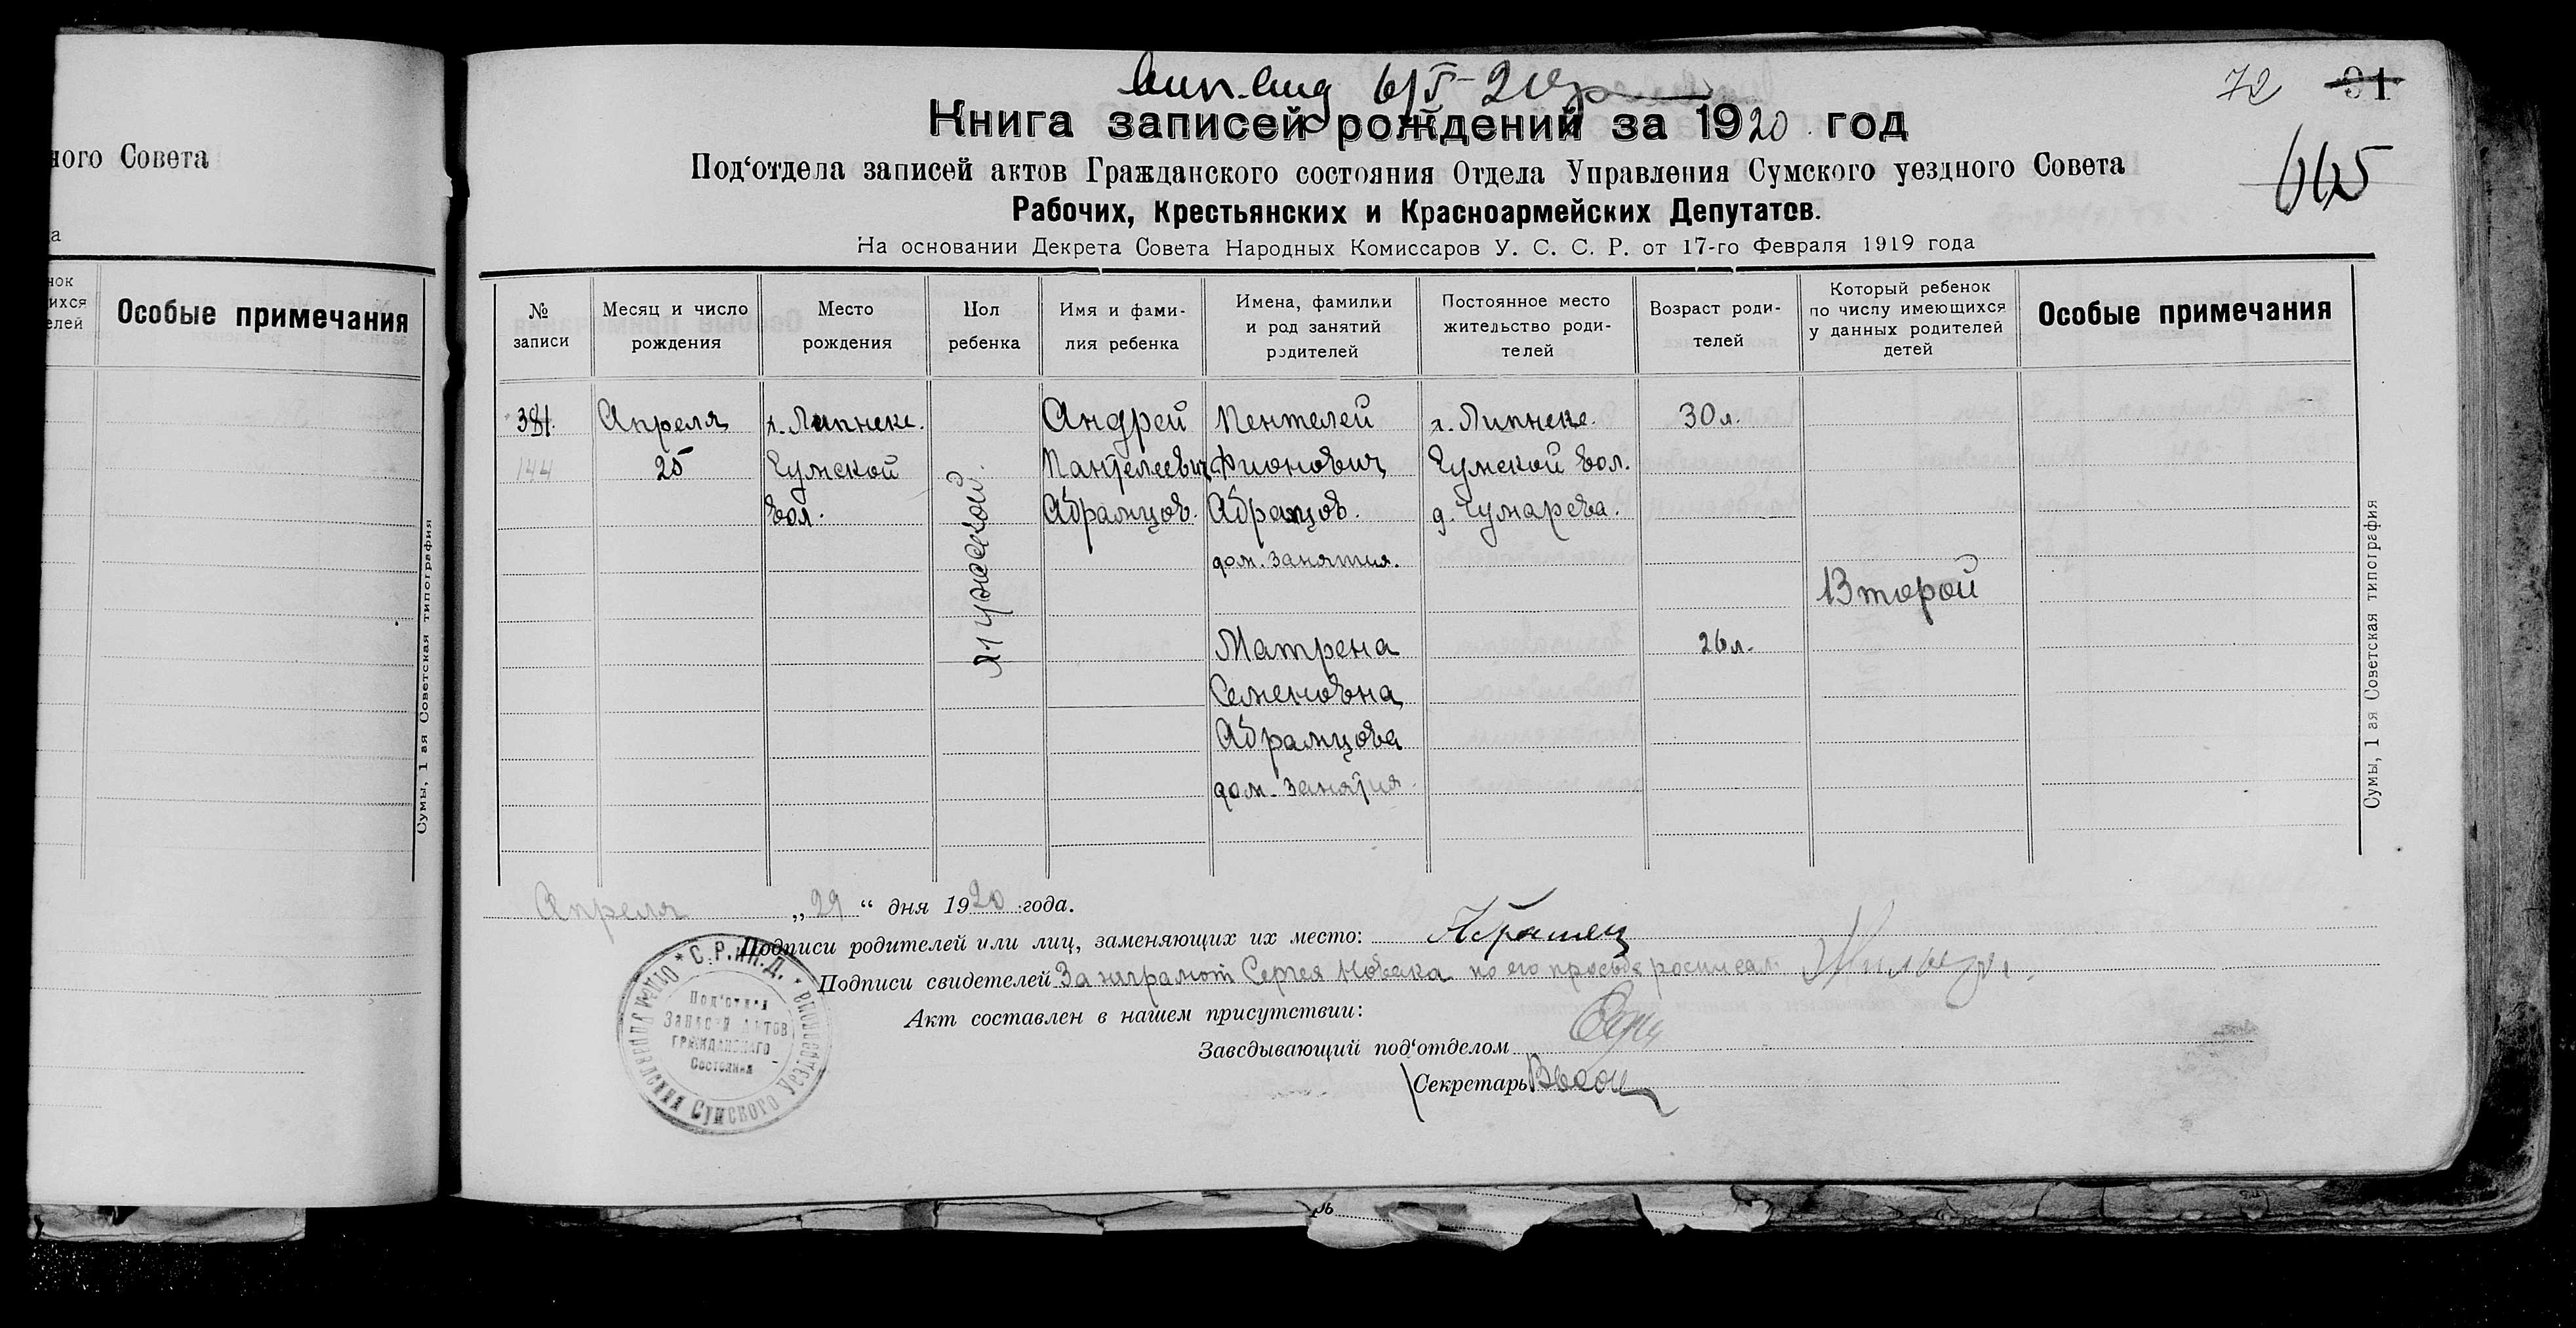 ного Совета
Особые примечания
Сумы, 1 ая Советская типография
72 91
665
Книга записей рождений за 1920 год
Под‘отдела записей актов Гражданского состояния Отдела Управления Сумского уездного Совета
Рабочих, Крестьянских и Красноармейских Депутатов.
На основании Декрета Совета Народных Комиссаров У. С. С. Р. от 17-го Февраля 1919 года
№ записи
Месяц и число рождения
Место рождения
Пол ребенка
Имя и фамилия ребенка
Имена, фамилии и род занятий родителей
Постоянное место жительство родителей
Возраст родителей
Который ребенок по числу имеющихся у данных родителей детей
Особые примечания
381.
144
Апреля
25
вол.
мужеской.
Андрей
Пантелеевич
Абрамцов.
Пентелей
Фионович
Абрамцов.
дом. занятия.
Матрена
Семеновна
Абрамцова
дом. занятия.
30 л.
26 л.
Второй
Сумы, 1 ая Советская типография
Апреля „29“ дня 1920 года.
Подписи родителей или лиц, заменяющих их место:
Подписи свидетелей За неграмот Сергея Новака по его просьбе росписал
Акт составлен в нашем присутствии:
Заведывающий под‘отделом
Секретарь
С.Р.и К.Д.
Отдел Управления Сумского Уездсовдепа
Под‘отдел
Записей Актов
Гражданского
Состояния